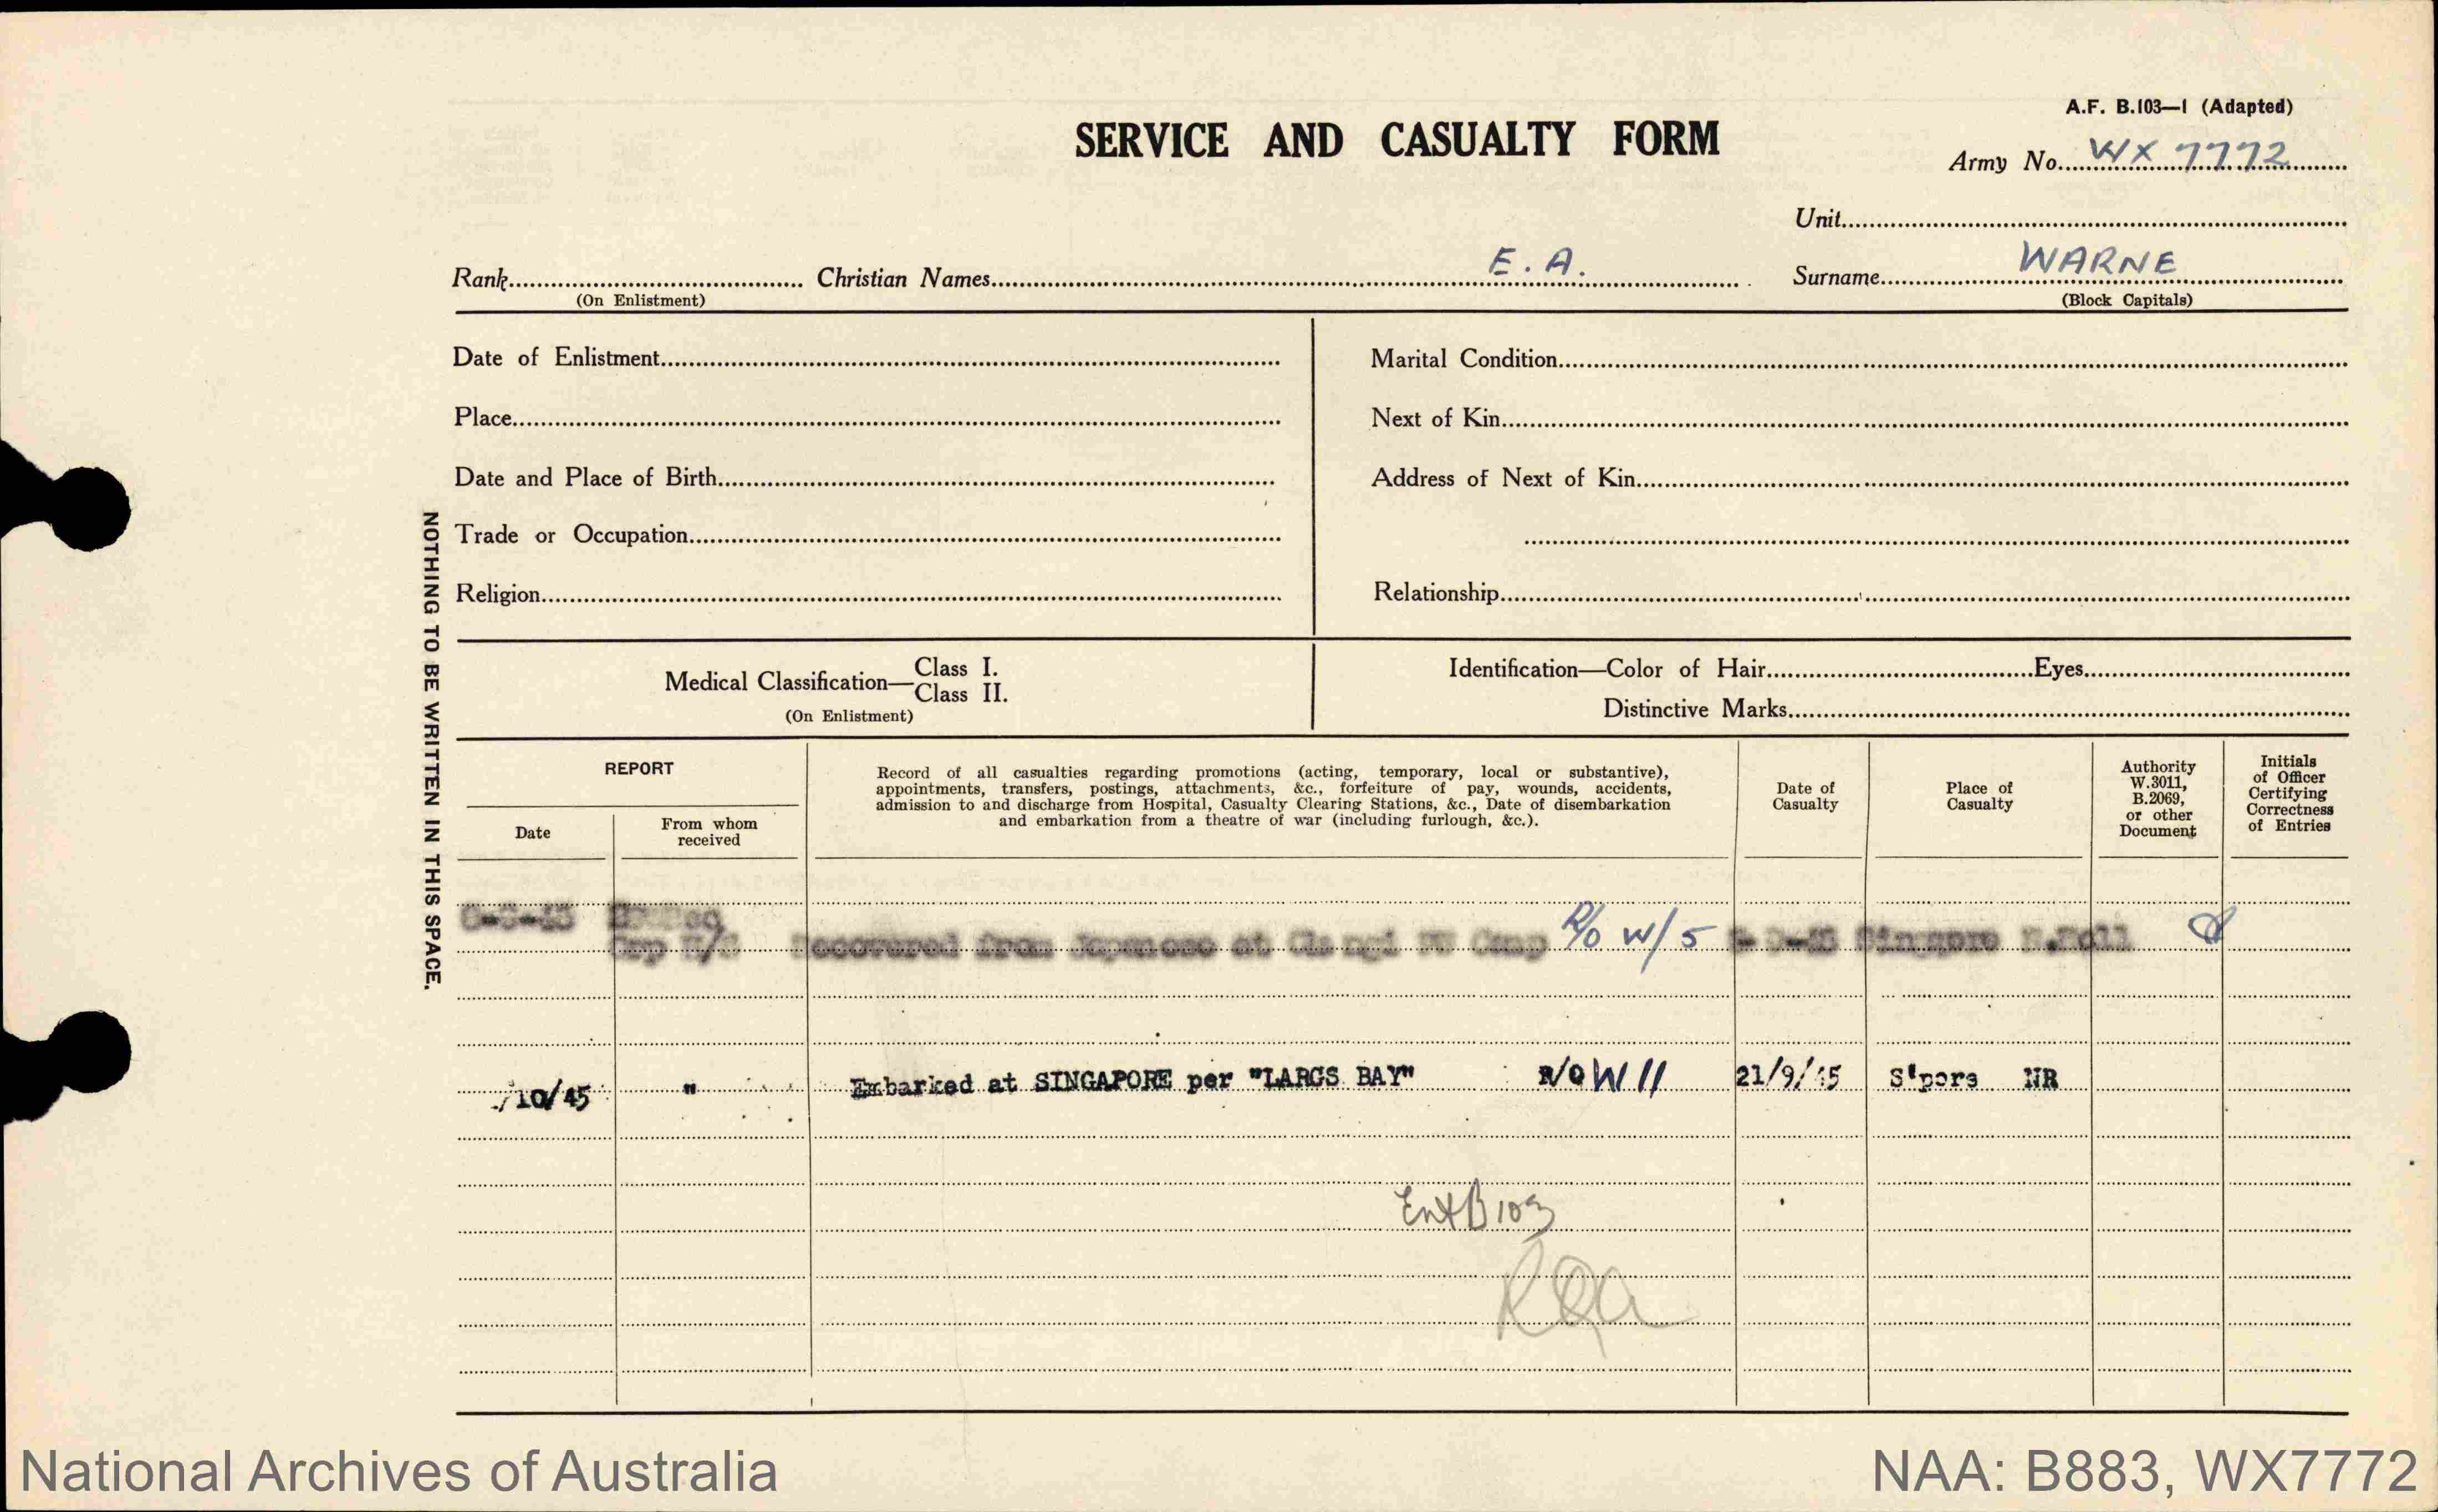 A.F. B.103—1 (Adapted)
SERVICE AND CASUALTY FORM
Army No. WX 7772
Unit
Rank
(On Enlistment)
Christian Names E. A.
Surname WARNE
(Block Capitals)
Date of Enlistment
Place
Date and Place of Birth
Trade or Occupation
Religion
Marital Condition
Next of Kin
Address of Next of Kin
Relationship
NOTHING TO BE WRITTEN IN THIS SPACE.
Medical Classification— Class I.
Class II.
(On Enlistment)
Identification—Color of Hair Eyes
Distinctive Marks
REPORT
Date
From whom
received
Record of all casualties regarding promotions (acting, temporary, local or substantive),
appointments, transfers, postings, attachments, &c., forfeiture of pay, wounds, accidents,
admission to and discharge from Hospital, Casualty Clearing Stations, &c., Date of disembarkation
and embarkation from a theatre of war (including furlough, &c.).
Date of
Casualty
Place of
Casualty
Authority
W.3011,
B.2069,
or other
Document
Initials
of Officer
Certifying
Correctness
of Entries
Recovered from Japanese at Changi PW Camp R/O W/5
/10/45 " Embarked at SINGAPORE per "LARGS BAY" R/O W 11 21/9/45 S'pore NR
Ent B103
National Archives of Australia
NAA: B883, WX7772